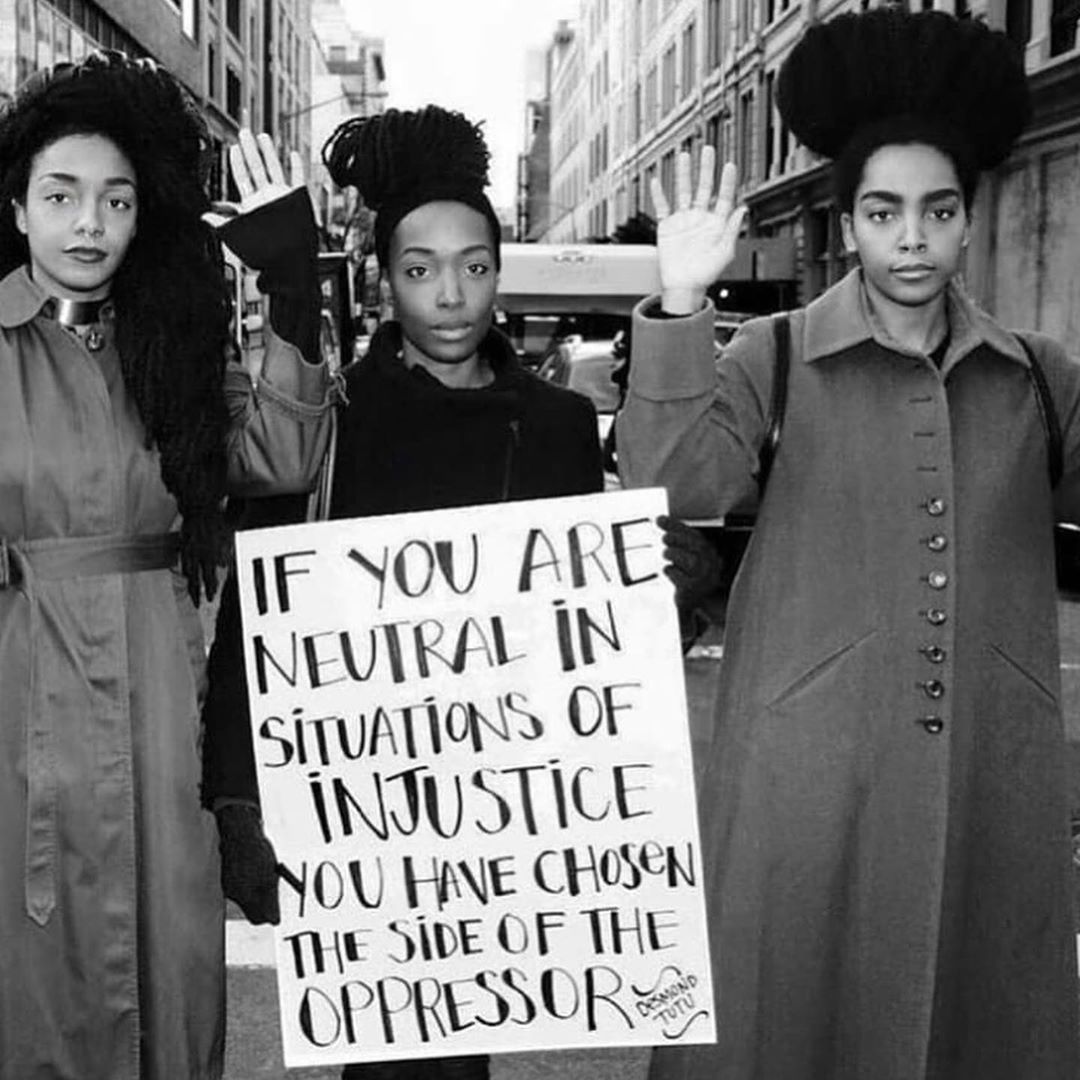 IF YOU ARE
NEUTRAL IN
SITUATIONS OF
INJUSTICE
YOU HAVE CHOSEN
THE SIDE OF THE
OPPRESSOR
DESMOND
TUTU